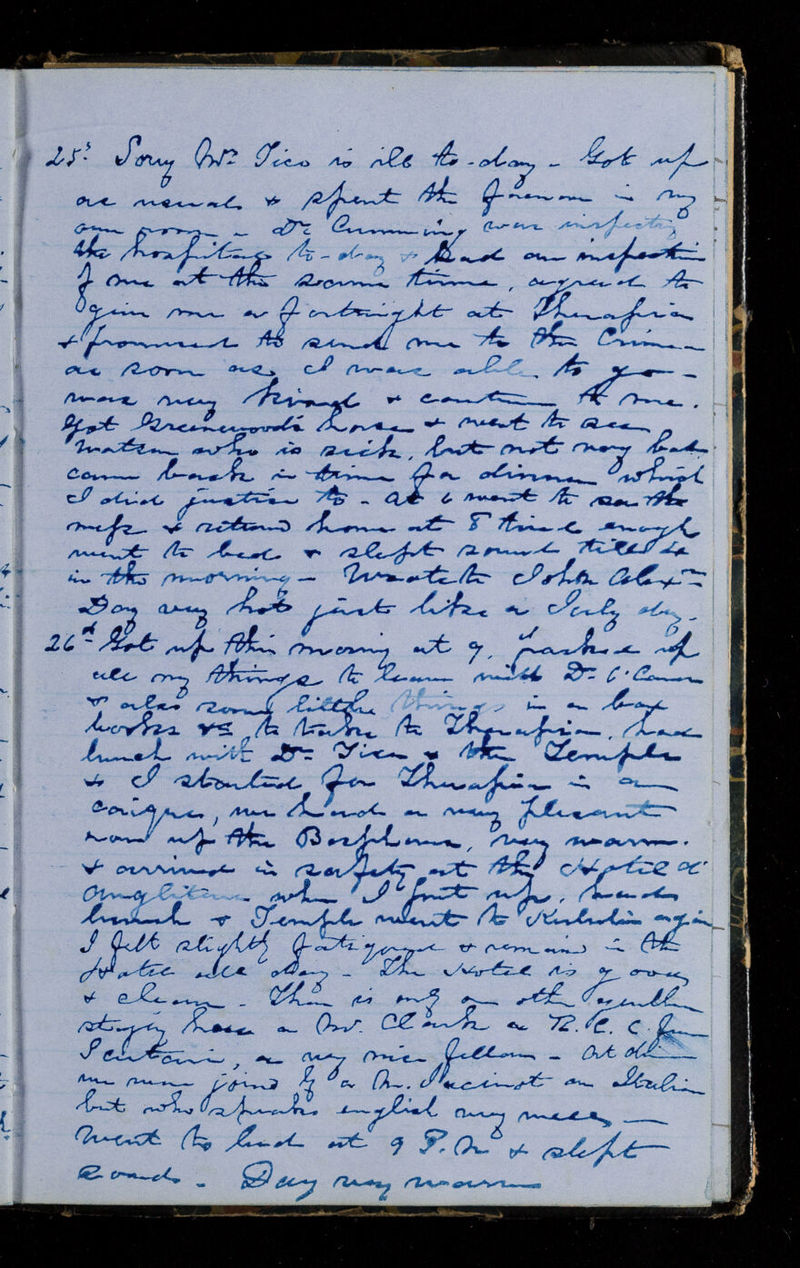 25th Sorry Mr Tice is ill to-day - Got up
as usual & spent the forenoon in my
own room - Dr Cumming was inspecting
the hospitals to-day & had an inspection
of me at the same time, agreed to
give me a fortnight at Therapia
& promised to send me to the Crimea
as soon as I was able to go -
was very kind & to me.
Got Greenwood's horse & went to see
Watson who is sick, but not very bad
came back in time for dinner which
I did justice to - at 6 went to see the
mess & returned home at 8 tired enough
went to bed & slept sound till
in the morning - Wrote to John Alexr
Day very hot just like a July day.
26th Got up this morning at 9, packed up
all my things to leave with Dr
& also some little things in a box
books &c to take to Therapia, had
lunch with Dr Tice & Temple
& I started for Therapia in a
caique, we had a very plesant
row up the Bosphorus, very warm.
& arrived in safety at the Hotel d'
Angliterre where I put up, had
lunch & Temple went to again
I felt slightly fatigued & remained in the
Hotel all day - The Hotel is good
& clean - There is only one other gentleman
staying here a Mr. Clark a R. C. C. from
Scutari, a very nice fellow - At dinner
we were joined by a Mr. an Italian
but who speaks english very well -
Went to bed at 9 P.M & slept
sound - Day very warm